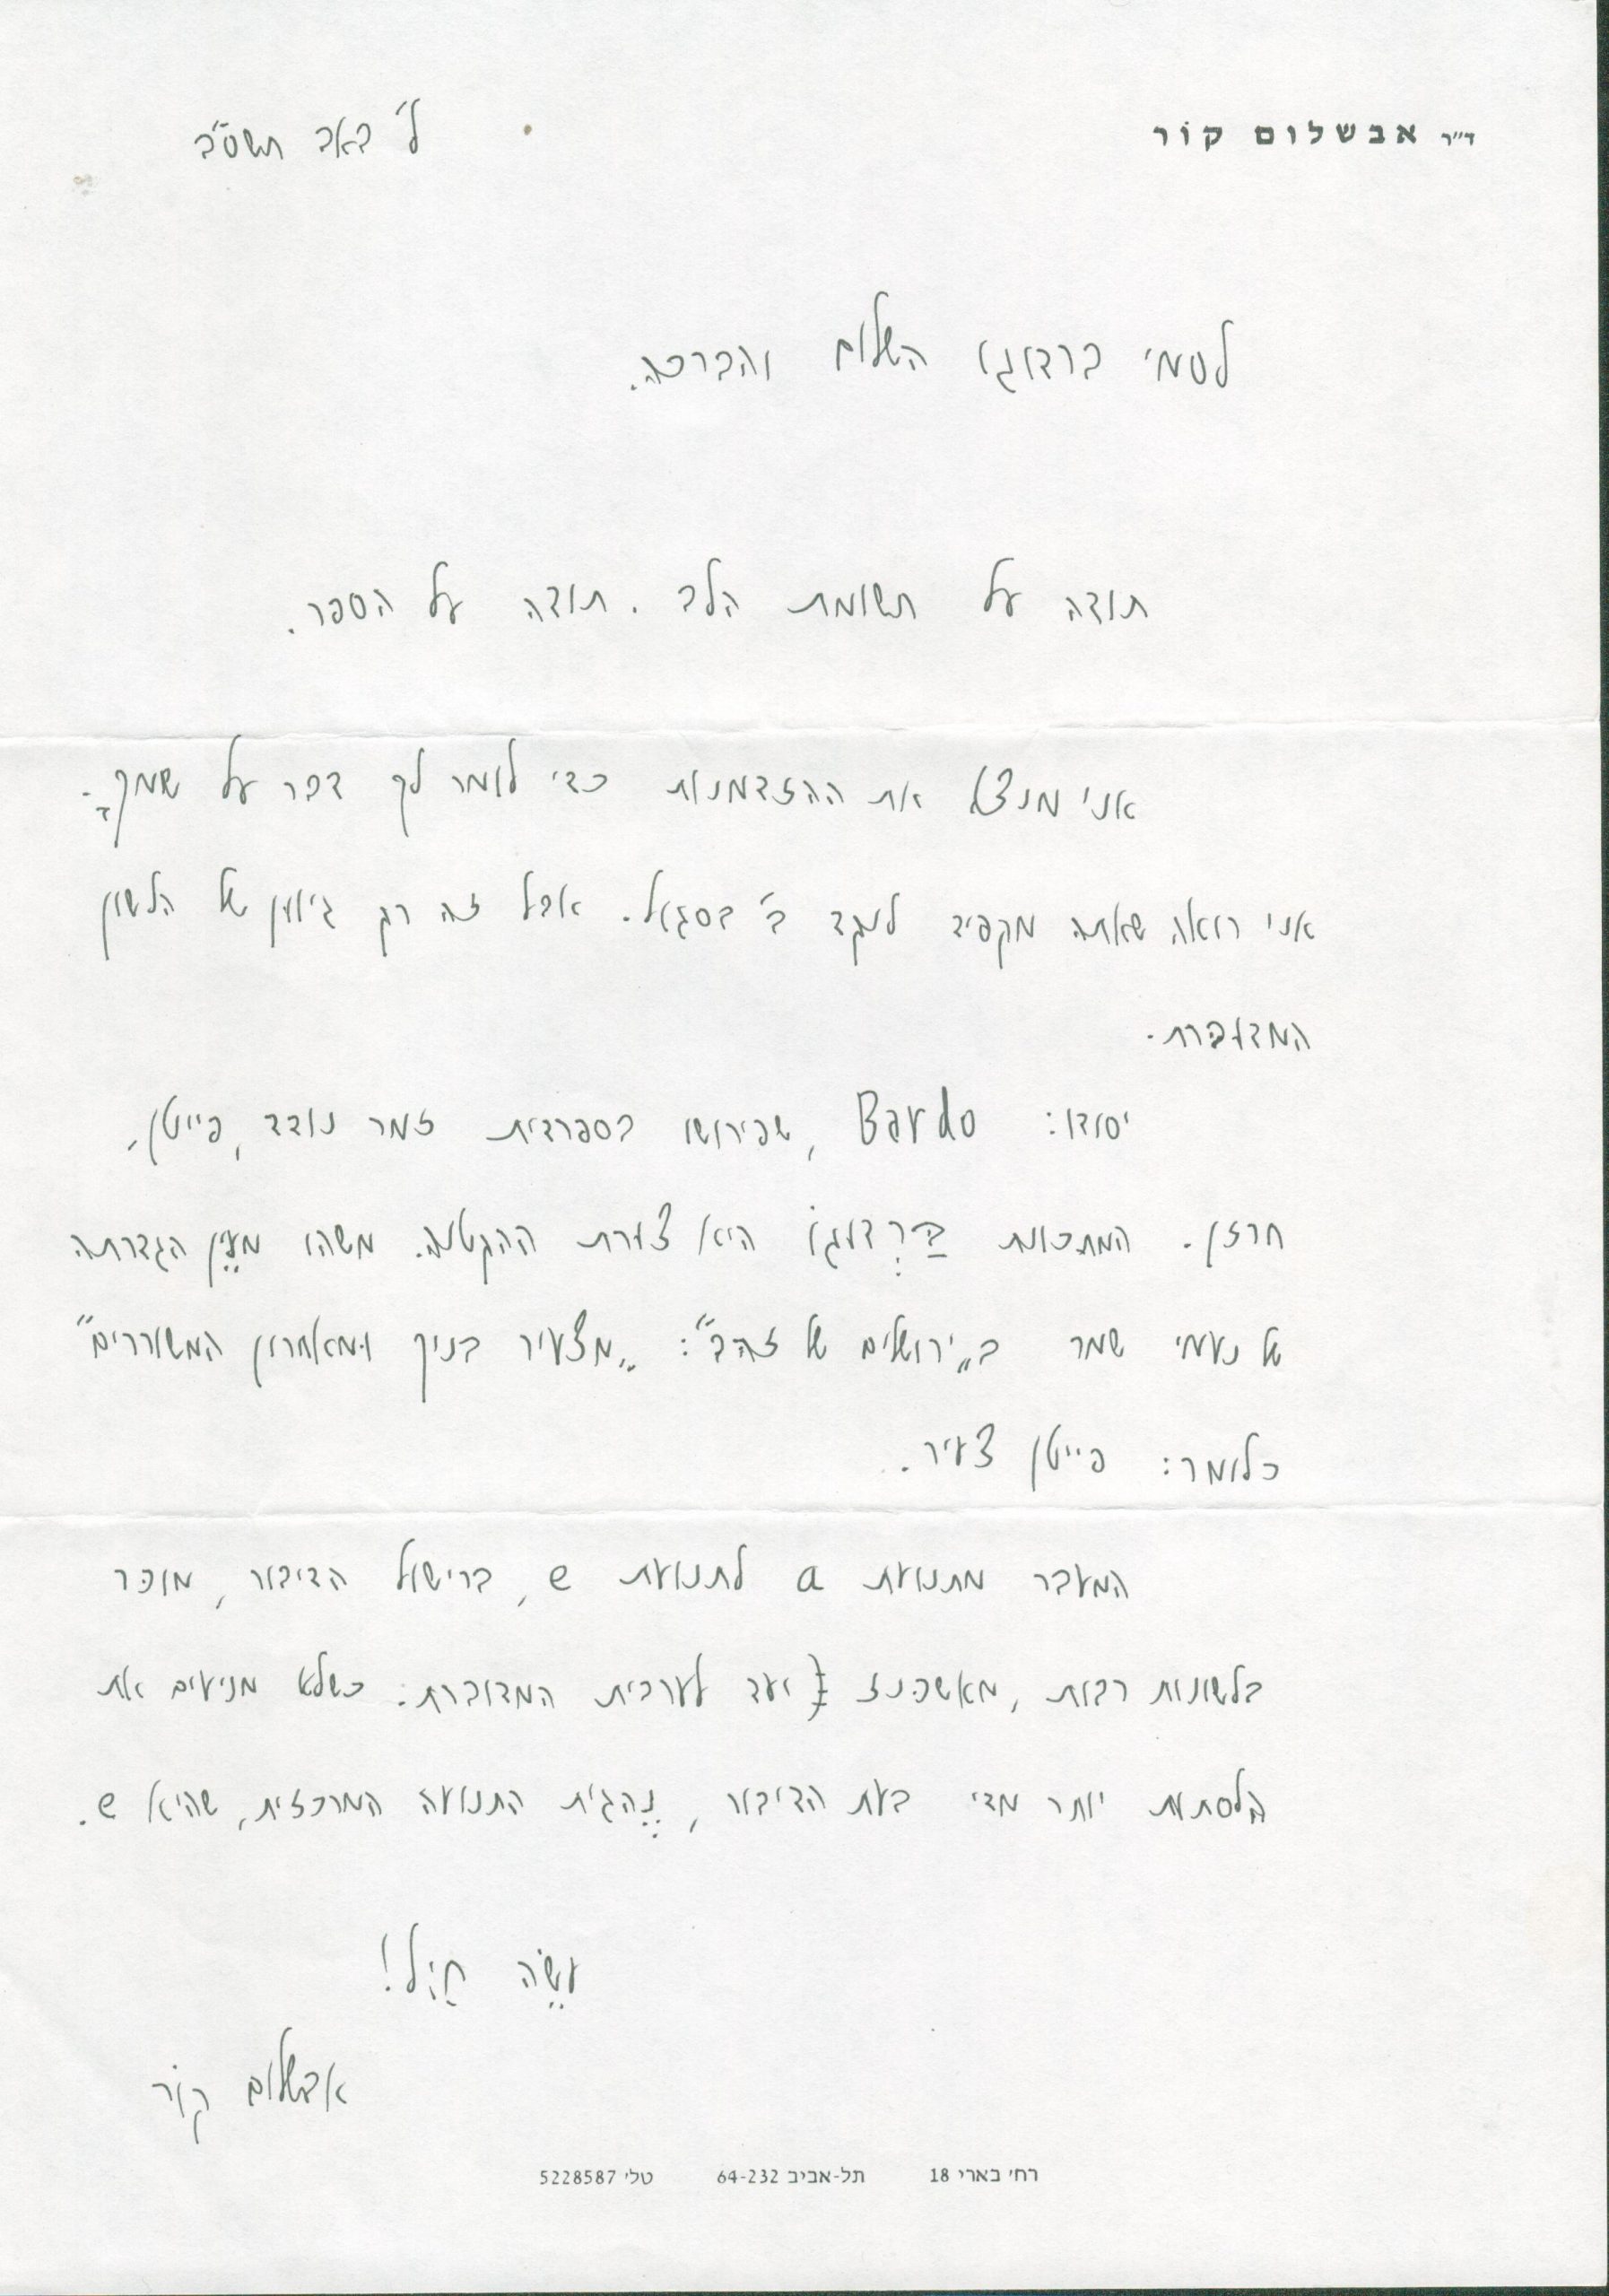 ד״ר אבשלום קוֹר
ל׳ באב תשס״ב
לסמי ברדוגו השלום והברכה.
תודה על תשומת הלב. תודה על הספר.
אני מנצל את ההזדמנות כדי לומר לך דבר על שמךָ.
אני רואה שאתה מקפיד לנקד ב׳ בסגול. אבל זה רק גיוון של הלשון
המדוּבּרת.
יסודו: Bardo, שפירושו בספרדית זמר נודד, פייטן,
חרזן. המתכונת בַּרְדוּגוֹ היא צורת ההקטנה. משהו מעֵין הגדרתה
של נעמי שמר ב„ירושלים של זהב״: „מצעיר בניך ומאחרון המשוררים״
כלומר: פייטן צעיר.
המעבר מתנועת a לתנועת e, ברישול הדיבור, מוכּר
בלשונות רבות, מאשכּנז ועד לערבית המדוברת: כשלא מניעים את
הלסתות יותר מדי בעת הדיבור, נֶהגית התנועה המרכזית, שהיא e.
עשֵׂה חַיִל!
אבשלום קוֹר
רח׳ בארי 18 תל-אביב 64-232 טל׳ 5228587